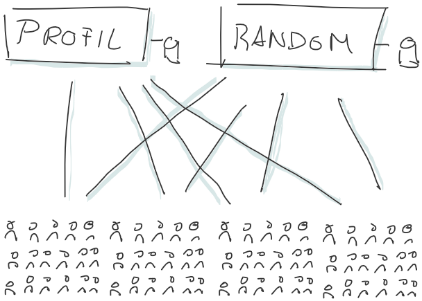 PROFIL
RANDOM